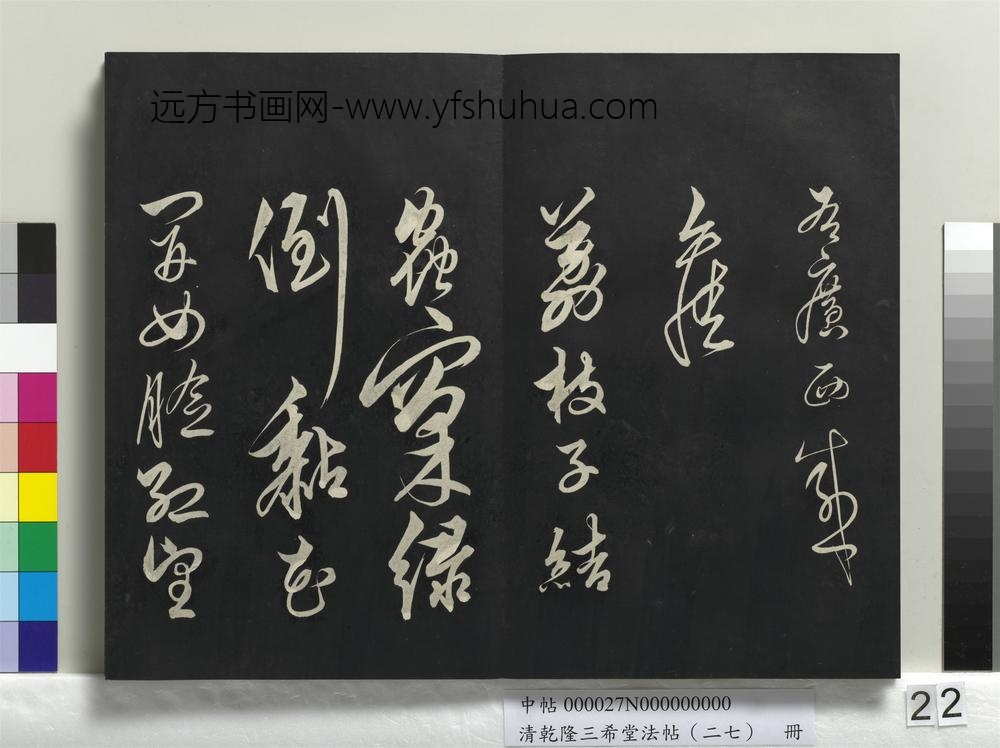 远方书画网-www.yfshuhua.com
廣西
荔枝子結
蟲窠綠
倒黏花
開女臉紅望
中帖 000027N000000000
清乾隆三希堂法帖（二七） 冊
22